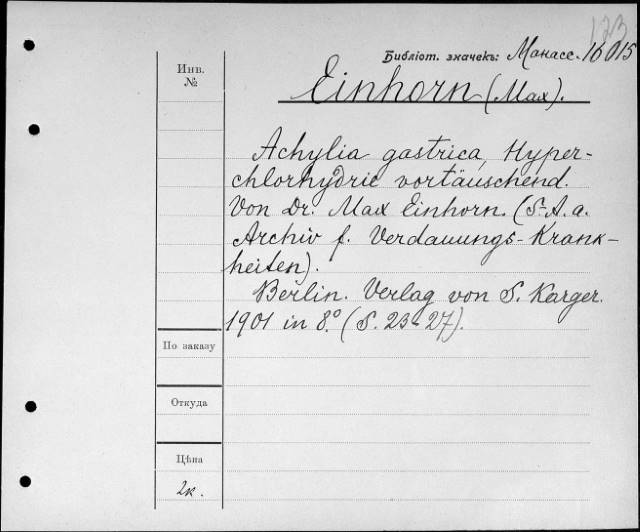 123
Библіот. значекъ: Манасс. 16015
Инв.
№
Einhorn (Max).
Achylia gastrica, Hyper-
chlorhydrie vortäuschend.
Von Dr. Max Einhorn. (S.-A. a.
Archiv f. Verdauungs-Krank-
heiten).
Berlin. Verlag von S. Karger.
1901 in 8.° (S. 23-27).
По заказу
Откуда
Цѣна
2к.